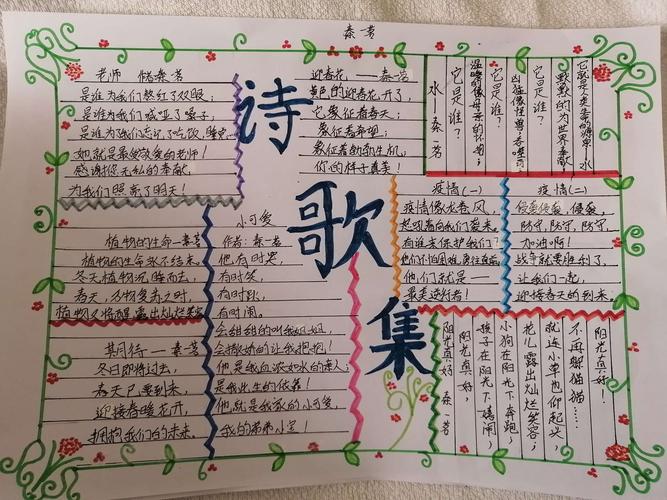 秦芳
诗歌集
老师 储秦芳
是谁为我们熬红了双眼；
是谁为我们喊哑了嗓子；
是谁为我们忘记了吃饭、睡觉
她就是最受敬爱的老师！
感谢你无私的奉献，
为我们照亮了明天！
迎春花，——秦芳
黄色的迎春花开了，
它象征着春天；
象征着希望；
象征着勃勃生机，
你的样子真美！
水——秦芳
它是谁？
温暖的像母亲的怀抱；
它是谁？
它是谁？
默默的为世界奉献！
水
植物的生命——秦芳
植物的生命永不结束。
冬天植物沉睡而去，
春天，万物复苏之时，
植物又将醒露出灿烂笑容
期待——秦芳
冬日即将过去，
春天已要到来，
迎接春暖花开，
拥抱我们的未来。
小可爱
作者：秦芳
他有时哭，
有时笑，
有时趴，
有时闹。
会甜甜的叫我姐姐，
会撒娇的让我抱抱！
他是我血浓如水的亲人；
是我此生的依靠！
他就是我家的小可爱，
我的弟弟小宝！
疫情（一）
疫情像龙卷风，
起吼着向我们袭来。
有谁来保护我们？
他们不怕困难，勇往直前
他们，就是——
最美逆行者！
疫情（二）
侵袭，侵袭，侵袭，
防守，防守，防守，
加油啊！
战争就要胜利了，
让我们一起，
迎接春天的到来。
阳光真好 秦芳
阳光真好，
孩子在阳光下嬉闹
小狗在阳光下奔跑；
花儿露出灿烂笑容；
就连小草也仰起头，
不再躲猫猫……
阳光真好！